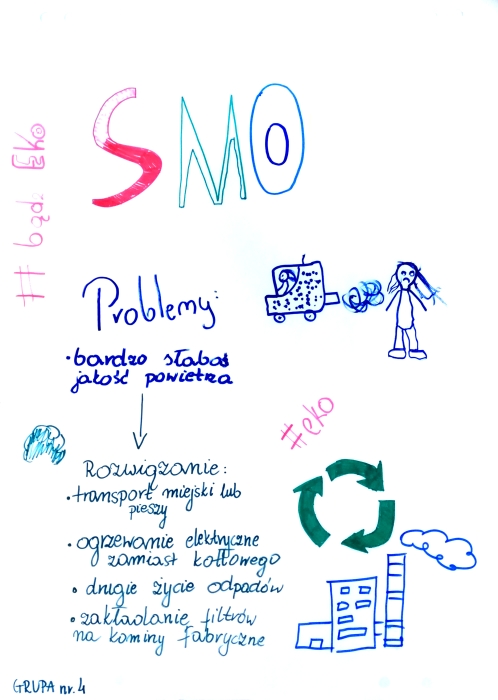 SMO
#bądź Eko
Problemy:
· bardzo słaboś
jakość powietrza
Rozwiązanie:
· transport miejski lub
pieszy
· ogrzewanie elektryczne
zamiast kotłowego
· drugie życie odpadów
· zakładanie filtrów
na kominy fabryczne
#eko
GRUPA nr. 4